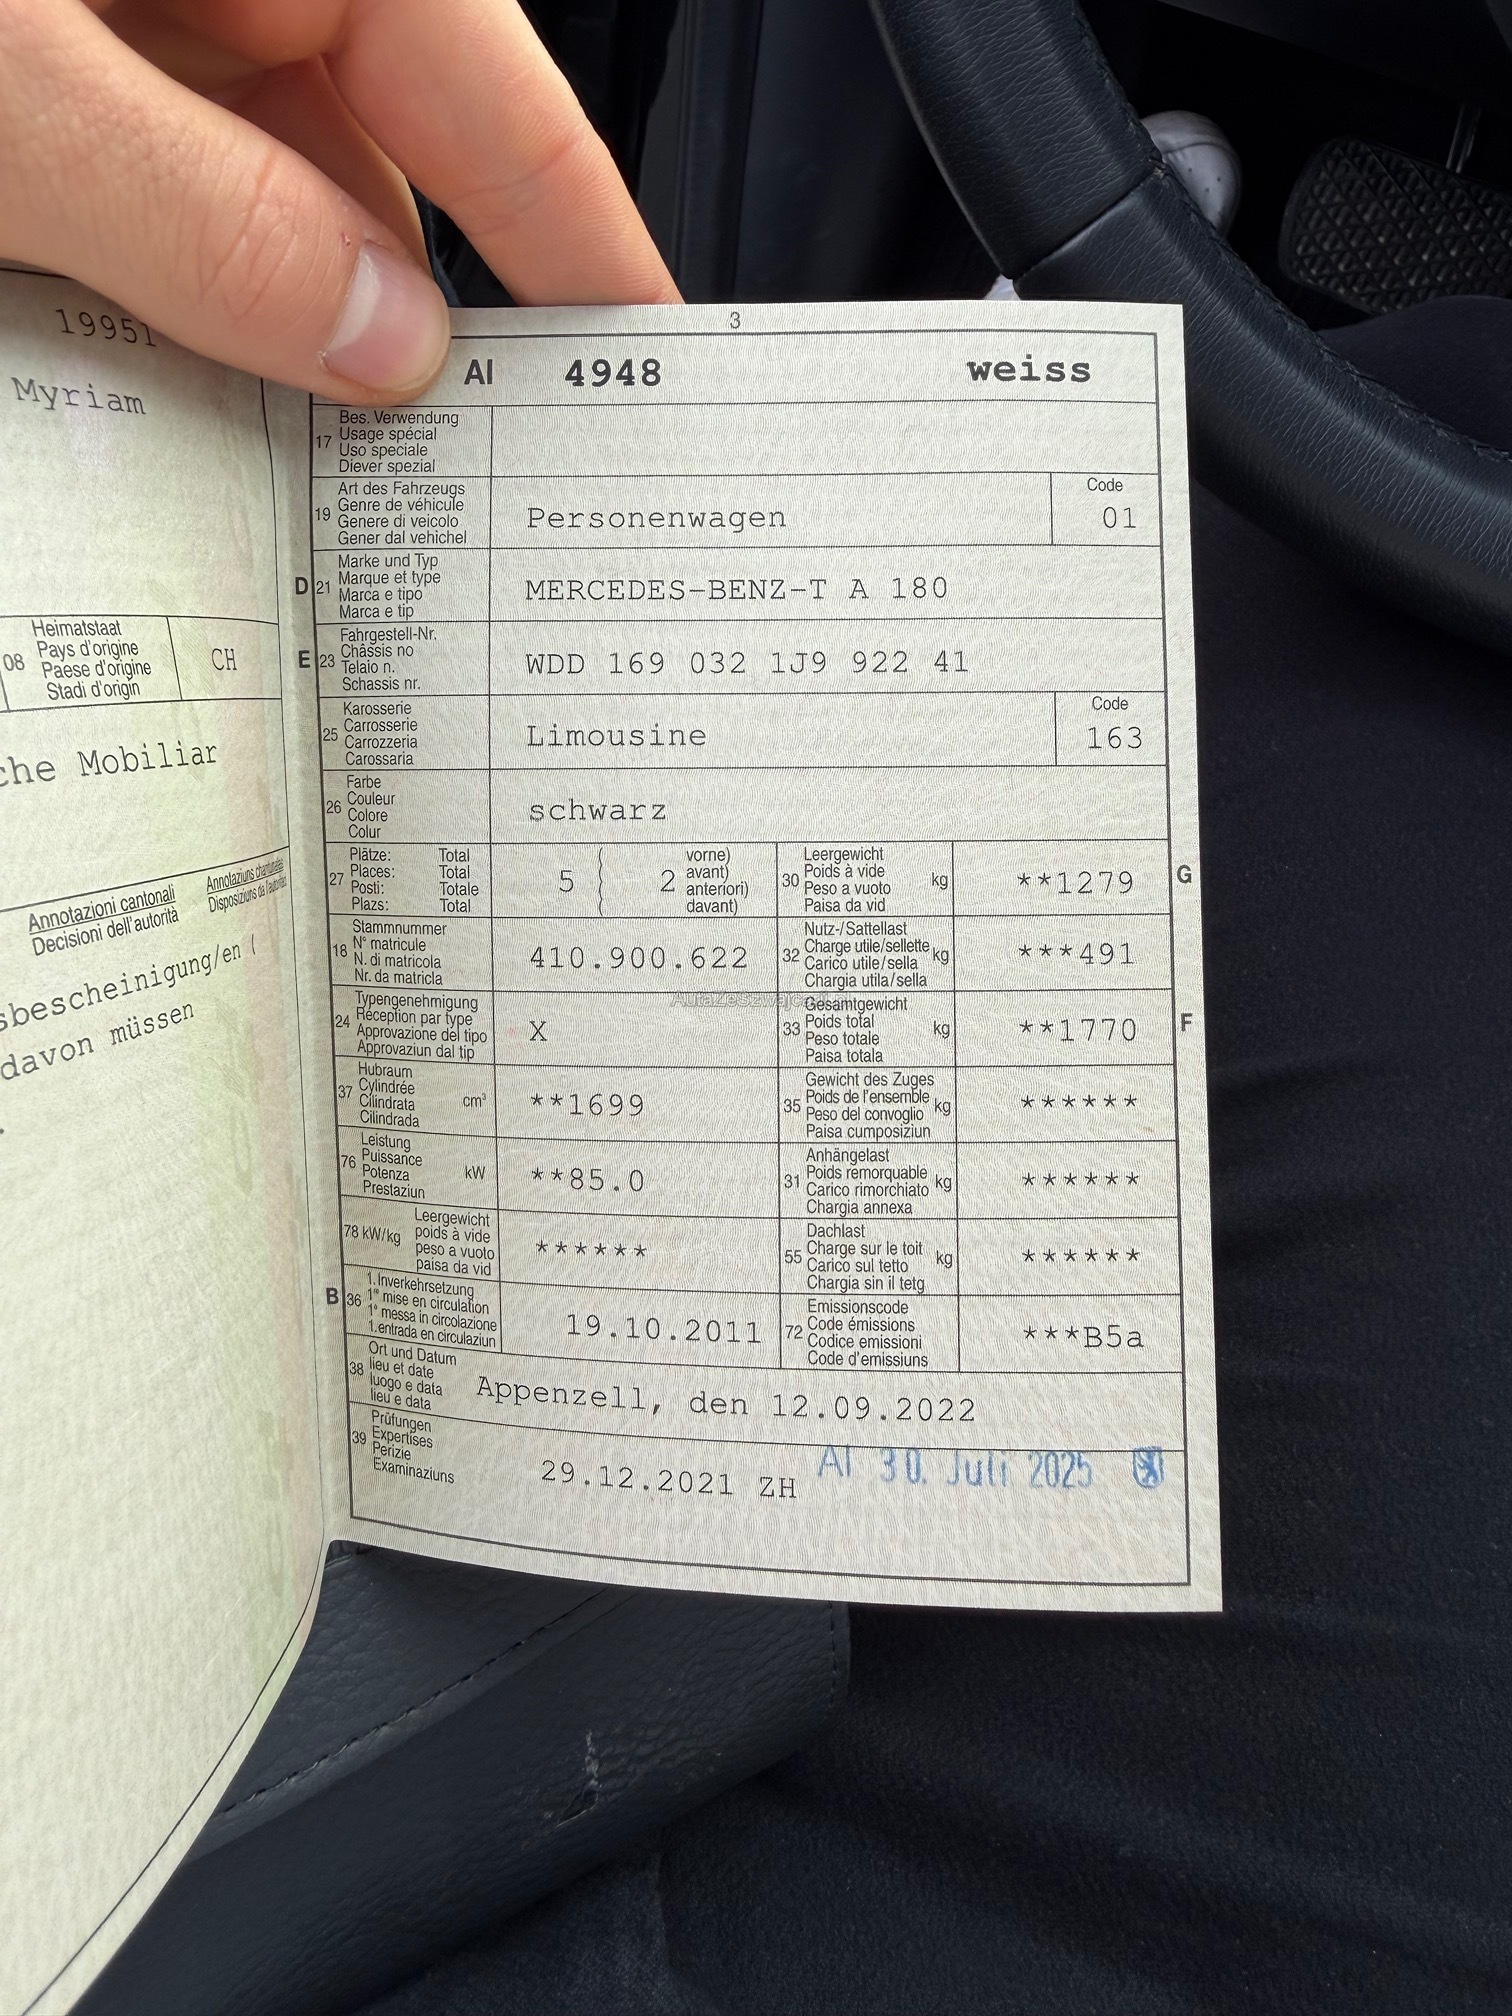 19951
Myriam
08
Heimatstaat
Pays d'origine
Paese d'origine
Stadi d'origin
CH
che Mobiliar
Annotazioni cantonali
Decisioni dell'autorità
Annotaziuns chantunalas
sbescheinigung/en (
davon müssen
.
3
AI 4948 weiss
17
Bes. Verwendung
Usage spécial
Uso speciale
Diever spezial
19
Art des Fahrzeugs
Genre de véhicule
Genere di veicolo
Gener dal vehichel
Personenwagen
Code
01
D 21
Marke und Typ
Marque et type
Marca e tipo
Marca e tip
MERCEDES-BENZ-T A 180
E 23
Fahrgestell-Nr.
Châssis no
Telaio n.
Schassis nr.
WDD 169 032 1J9 922 41
25
Karosserie
Carrosserie
Carrozzeria
Carossaria
Limousine
Code
163
26
Farbe
Couleur
Colore
Colur
schwarz
27
Plätze: Total
Places: Total
Posti: Totale
Plazs: Total
5 { 2
vorne)
avant)
anteriori)
davant)
30
Leergewicht
Poids à vide
Peso a vuoto
Paisa da vid
kg
**1279
G
18
Stammnummer
N° matricule
N. di matricola
Nr. da matricla
410.900.622
32
Nutz-/Sattellast
Charge utile/sellette
Carico utile/sella
Chargia utila/sella
kg
***491
24
Typengenehmigung
Réception par type
Approvazione del tipo
Approvaziun dal tip
X
33
Gesamtgewicht
Poids total
Peso totale
Paisa totala
kg
**1770
F
37
Hubraum
Cylindrée
Cilindrata
Cilindrada
cm³
**1699
35
Gewicht des Zuges
Poids de l'ensemble
Peso del convoglio
Paisa cumposiziun
kg
******
76
Leistung
Puissance
Potenza
Prestaziun
kW
**85.0
31
Anhängelast
Poids remorquable
Carico rimorchiato
Chargia annexa
kg
******
78 kW/kg
Leergewicht
poids à vide
peso a vuoto
paisa da vid
******
55
Dachlast
Charge sur le toit
Carico sul tetto
Chargia sin il tetg
kg
******
B 36
1.Inverkehrsetzung
1re mise en circulation
1a messa in circolazione
1.entrada en circulaziun
19.10.2011
72
Emissionscode
Code émissions
Codice emissioni
Code d'emissiuns
***B5a
38
Ort und Datum
lieu et date
luogo e data
lieu e data
Appenzell, den 12.09.2022
39
Prüfungen
Expertises
Perizie
Examinaziuns
29.12.2021 ZH
AI 30. Juli 2025